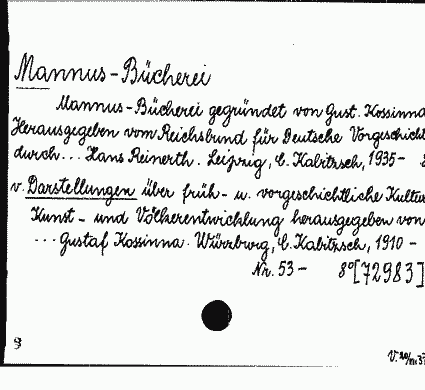 Mannus-Bücherei
Mannus-Bücherei gegründet von Gust. Kossinna
Herausgegeben vom Reichsbund für Deutsche Vorgeschicht
durch... Hans Reinerth. Leipzig, C. Kabitzsch, 1935-
v. Darstellungen über früh- u. vorgeschichtliche Kultur
Kunst- und Völkerentwicklung herausgegeben von
... Gustaf Kossinna. Würzburg, C. Kabitzsch, 1910-
Nr. 53- 8°[72983]